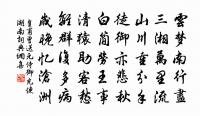 雲夢南行盡
三湘萬里流
山川重分手
徒御亦悲秋
白簡勞王事
清猿助客愁
離群復多病
歲晚憶滄洲
皇甫曾送元侍御充使
湖南詞典網喜